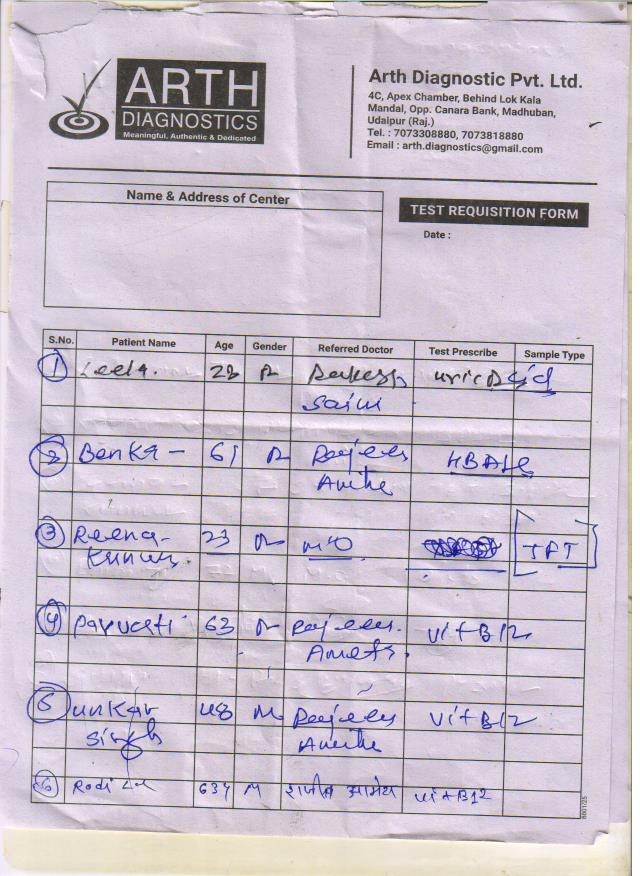 ARTH
DIAGNOSTICS
Meaningful, Authentic & Dedicated
Arth Diagnostic Pvt. Ltd.
4C, Apex Chamber, Behind Lok Kala
Mandal, Opp. Canara Bank, Madhuban,
Udaipur (Raj.)
Tel. : 7073308880, 7073818880
Email : arth.diagnostics@gmail.com
Name & Address of Center
TEST REQUISITION FORM
Date :
S.No. Patient Name Age Gender Referred Doctor Test Prescribe Sample Type
1 Leela. 28 uric Acid
Saini
2 61 HBA1c
3 Reena 23 MO
Kunwar.
4 Parvati 63 Vit B12
5 unkar 48 M Vit B12
Singh
6 Rodi Lal 63y M Vit B12